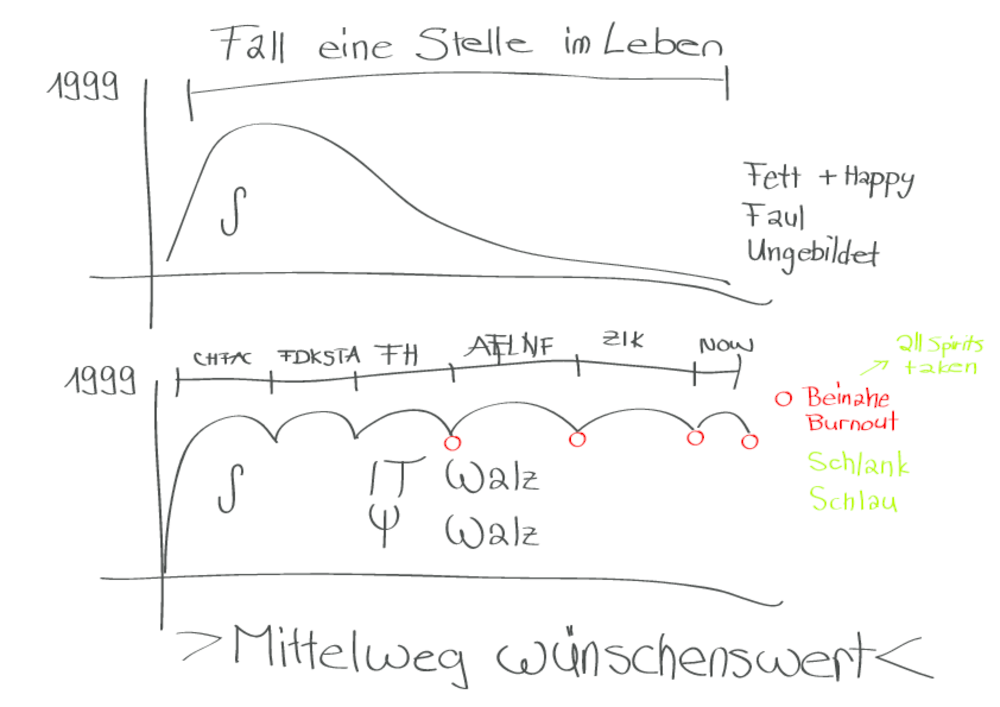 Fall eine Stelle im Leben
1999
Fett + Happy
Faul
Ungebildet
ZIK
NOW
FH
1999
all Spirits
taken
Beinahe
Burnout
Schlank
Schlau
IT Walz
Ψ Walz
>Mittelweg wünschenswert<